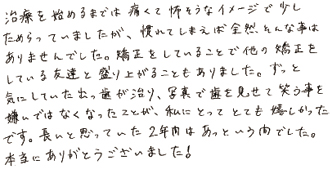 治療を始めるまでは 痛くて怖そうなイメージで少し
ためらっていましたが、慣れてしまえば全然そんな事は
ありませんでした。矯正をしていることで他の矯正を
している友達と盛り上がることもありました。ずっと
気にしていた出っ歯が治り、写真で歯を見せて笑う事を
嫌いではなくなったことが、私にとってとても嬉しかった
です。長いと思っていた2年間はあっという間でした。
本当にありがとうございました!